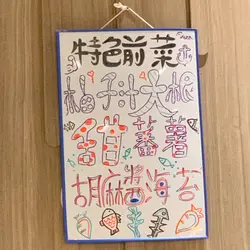 特色前菜
柚子汁大根
甜蕃薯
胡麻醬海苔